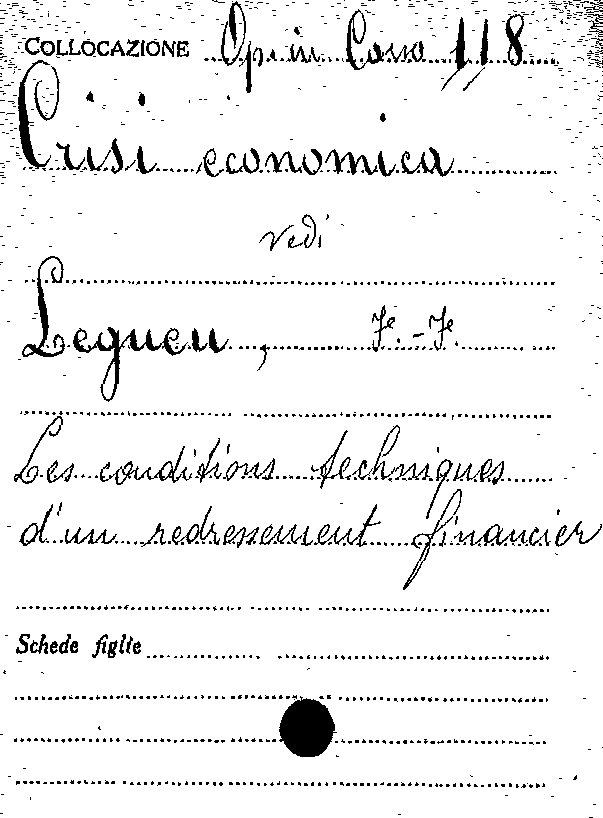 COLLOCAZIONE Op. in Corso 118
Crisi economica
vedi
Legueu, F.-F.
Les conditions techniques
d'un redressement financier
Schede figlie